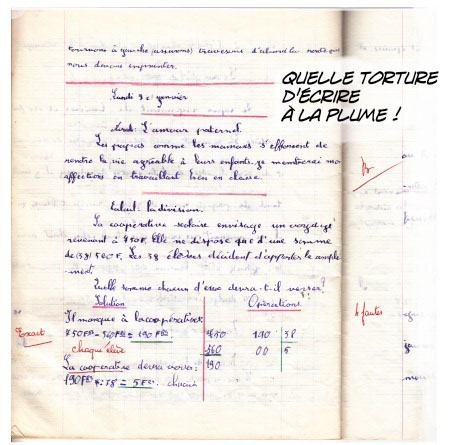 tournons à gauche traversons d'abord la route que
nous devons emprunter.
Lundi 9 janvier
QUELLE TORTURE
D'ÉCRIRE
À LA PLUME !
Morale: L'amour paternel.
Les papas comme les mamans s'efforcent de
rendre la vie agréable à leurs enfants. je montrerai mon
affection en travaillant bien en classe.
Calcul: la division.
La coopérative scolaire envisage un
revenant à 750F. Elle ne dispose que d'une somme
de 560F. Les 38 élèves décident d'apporter le complé
ment.
Quelle somme chacun d'eux devra-t-il verser?
Solution
Opérations
Il manque à la coopérative:
Exact
750F - 560F = 190F
750
190 38
4 fautes
chaque élève
560
00 5
La coopérative devra verser:
190
190F : 38 = 5F chacun
B